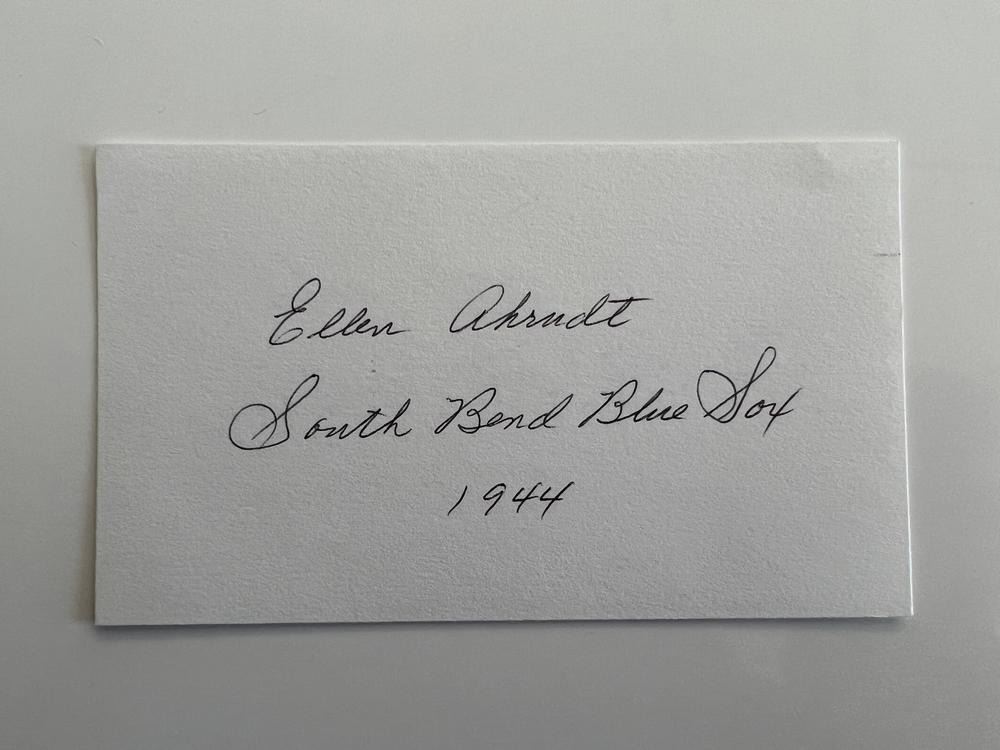 Ellen Ahrndt
South Bend Blue Sox
1944